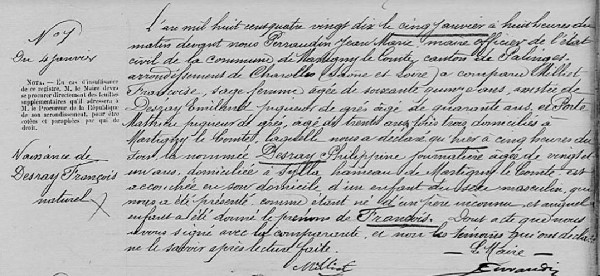 No 1
Du 4 Janvier
NOTA. — En cas d'insuffisance
de ce registre, M. le Maire devra
se procurer directement des feuilles
supplémentaires qu'il adressera à
M. le Procureur de la République
de son arrondissement, pour être
cotées et paraphées par qui de
droit.
Naissance de
Desray François
naturel
L'an mil huit cent quatre vingt dix le cinq Janvier à huit heures du
matin devant nous Perraudin Jean Marie, maire officier de l'état
civil de la commune de Martigny le Comte, canton de Palinges,
arrondissement de Charolles (Saône et Loire), a comparu Milliot
Françoise, sage femme agée de soixante quinze ans, assistée de
Desray Emiland piqueur de grès agé de quarante ans, et
Mathieu piqueur de grès, agé de trente ans, tous trois domiciliés à
Martigny le Comte, laquelle nous a déclaré qu'hier à cinq heures du
soir la nommée Desray Philippine journalière agée de vingt
un ans, domiciliée à hameau de Martigny le Comte est
accouchée en son domicile d'un enfant du sexe masculin, qui
nous a été présenté, comme étant né d'un père inconnu, et auquel
enfant a été donné le prénom de François. Dont acte que nous
avons signé avec la comparante, et non les témoins qui ont déclaré
ne le savoir après lecture faite.
Le Maire
Milliot
Perraudin